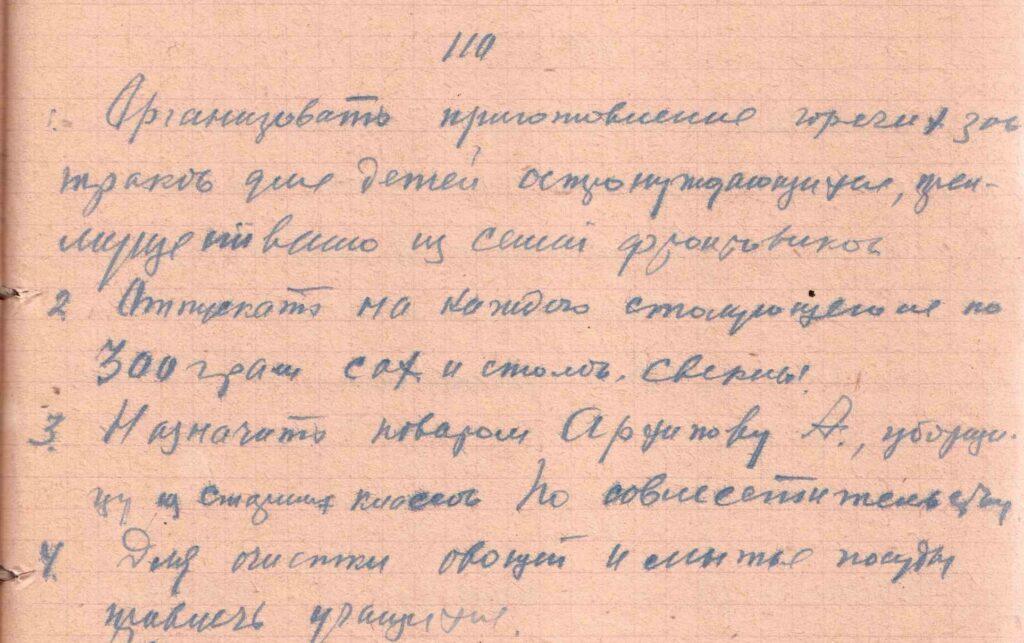 110
1. Организовать приготовление горячих зав
траков для детей остронуждающихся, преи-
мущественно из семей фронтовиков
2. Отпускать на каждого столующегося по
300 грам сах. и столов. свеклы
3. Назначить поваром Архипову А., уборщи-
цу из старших классов по совместительству
4. Для очистки овощей и мытье посуды
привлечь учащихся.